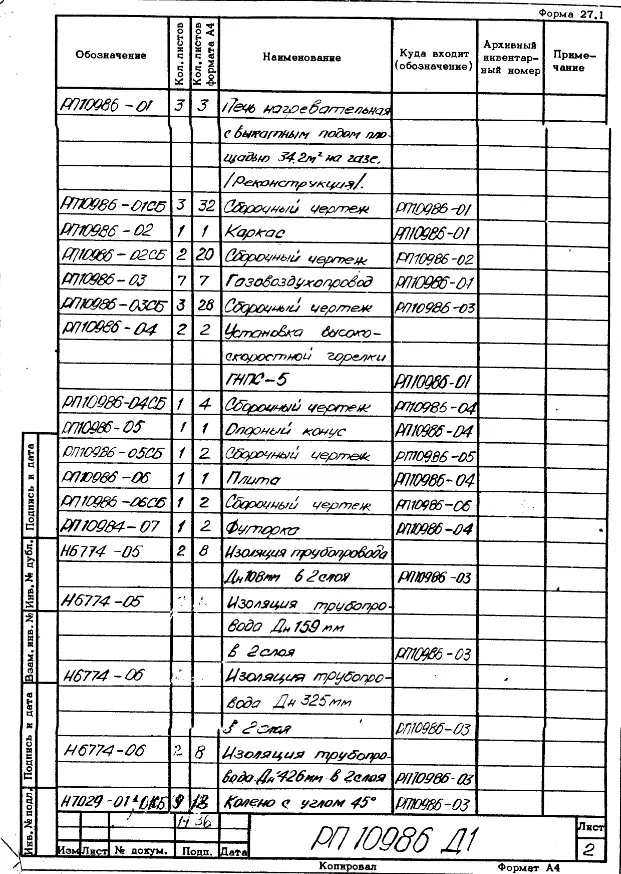 Форма 27.1
Обозначение Кол.листов Кол.листов формата А4 Наименование Куда входит (обозначение) Архивный инвентарный номер Примечание
РП10986-01 3 3 Печь нагревательная
с выкатным подом пло-
щадью 34.2м² на газе.
/Реконструкция/.
РП10986-01СБ 3 32 Сборочный чертеж РП10986-01
РП10986-02 1 1 Каркас РП10986-01
РП10986-02СБ 2 20 Сборочный чертеж РП10986-02
РП10986-03 7 7 Газовоздухопровод РП10986-01
РП10986-03СБ 3 28 Сборочный чертеж РП10986-03
РП10986-04 2 2 Установка высоко-
скоростной горелки
ГНПС-5 РП10986-01
РП10986-04СБ 1 4 Сборочный чертеж РП10986-04
РП10986-05 1 1 Опорный конус РП10986-04
РП10986-05СБ 1 2 Сборочный чертеж РП10986-05
РП10986-06 1 1 Плита РП10986-04
РП10986-06СБ 1 2 Сборочный чертеж РП10986-06
РП10984-07 1 2 Футорка РП10986-04
Н6774-05 2 8 Изоляция трубопровода
Дн108мм в 2 слоя РП10986-03
Н6774-05 Изоляция трубопро-
вода Дн159мм
в 2 слоя РП10986-03
Н6774-06 Изоляция трубопро-
вода Дн 325мм
в 2 слоя РП10986-03
Н6774-06 2 8 Изоляция трубопро-
вода Дн 426мм в 2 слоя РП10986-03
Колено с углом 45° РП10986-03
36
Изм Лист № докум. Подп. Дата
РП10986 Д1
Лист
2
Копировал Формат А4
Инв.№ подл. Подпись и дата Взам. инв. № Инв. № дубл. Подпись и дата